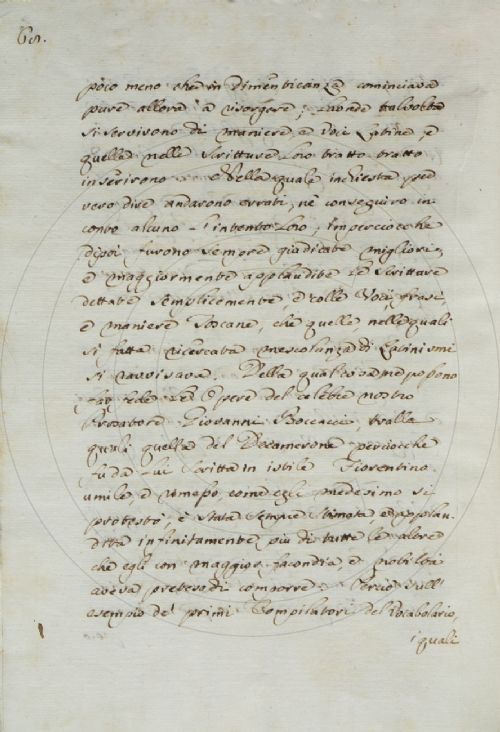 68.
poco meno che in dimenticanza cominciava
pure allora a risorgere; laonde talvolta
si servirono di maniere, e voci Latine, e
quelle nelle Scritture loro tratto tratto
inserirono. Della quale inchiesta, per
vero dire andarono errati, nè conseguiro in
conto alcuno l'intento loro; imperciocchè
dipoi furono sempre giudicate migliori,
e maggiormente applaudite le Scritture
dettate semplicemente, e colle Voci, frasi,
e maniere Toscane, che quelle, nelle quali
si fatta ricercata mescolanza di Latinismi
si ravvisava. Della qual cosa ne posono
far fede le Opere del celebre nostro
Prosatore Giovanni Boccacci, tralla
quali quella del Decamerone perciocchè
fu da lui scritta in istile Fiorentino
umile e rimesso, come egli medesimo si
protestò, è stata sempre stimata, ed applau-
dita infinitamente più di tutte le altre
che egli con maggior facondia, e nobiltà
aveva preteso di comporre. Perciò sull'
esempio de' primi Compilatori del Vocabolario,
i quali